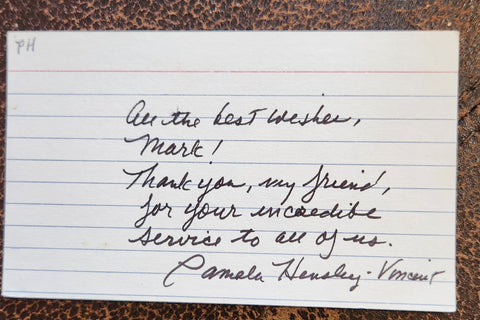 PH
All the best wishes,
Mark!
Thank you, my friend,
for your incredible
service to all of us.
Pamela Hensley-Vincent